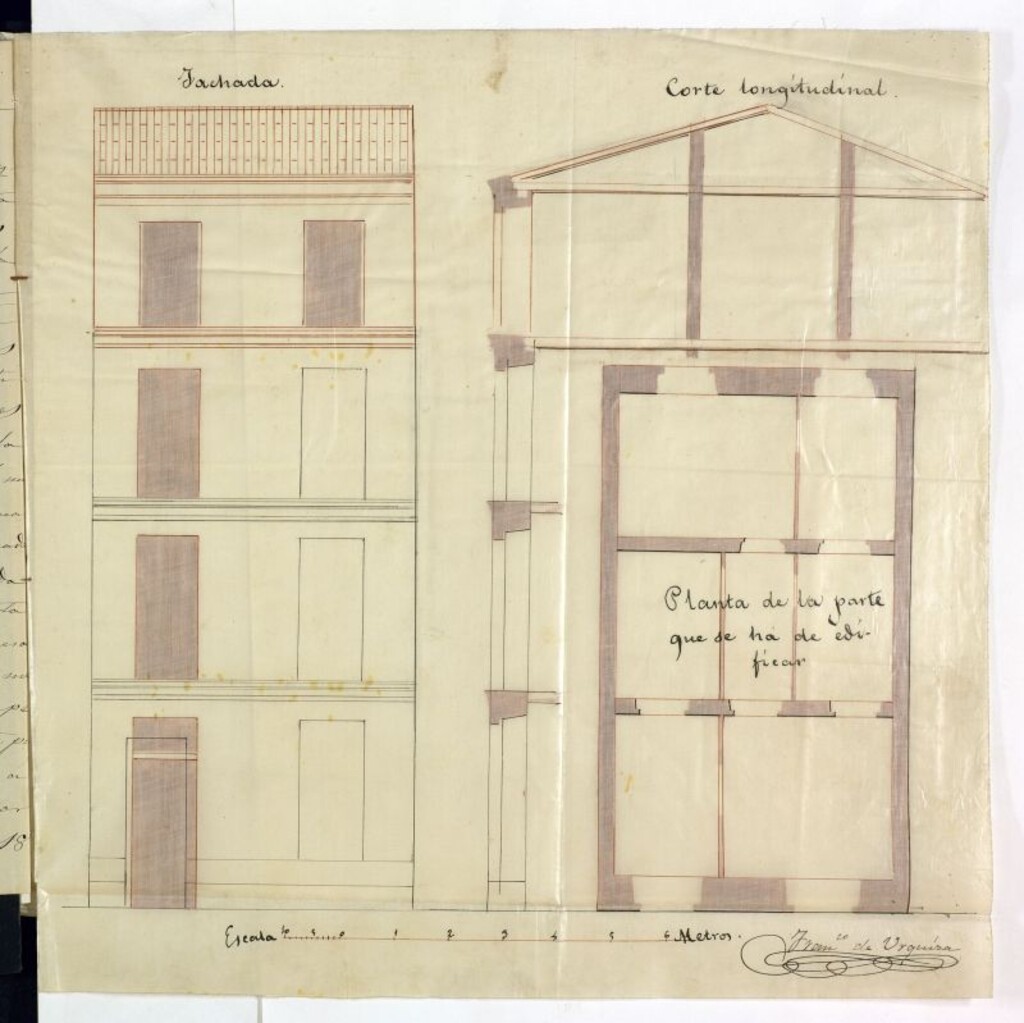 Fachada.
Corte longitudinal.
Planta de la parte
que se ha de edi-
ficar
Escala 10 5 0 1 2 3 4 5 6 Metros.
Fran.co de Urquiza